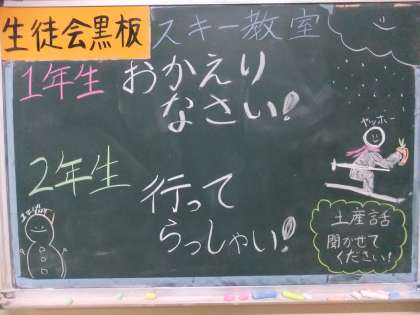 生徒会黒板
スキー教室
1年生
おかえり
なさい!
ヤッホー
2年生
行って
らっしゃい!
土産話
聞かせて
ください!